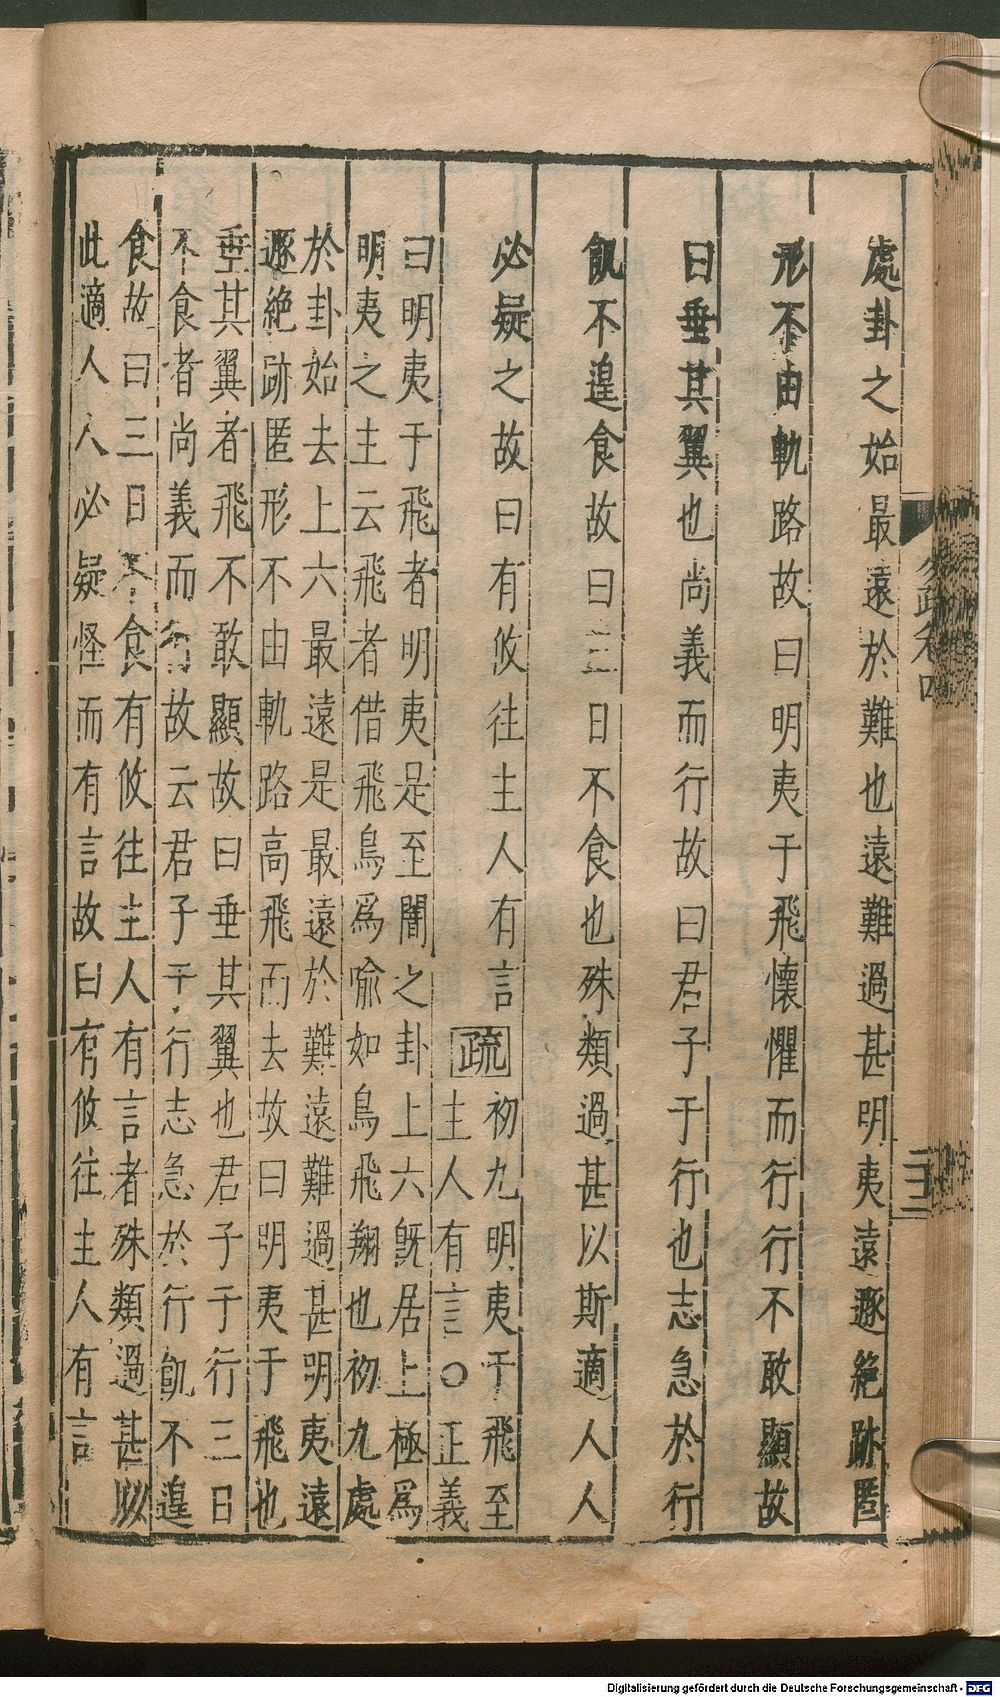 處卦之始最遠於難也遠難過甚明夷遠遯絶跡匿
形不由軌路故曰明夷于飛懷懼而行行不敢顯故
曰垂其翼也尚義而行故曰君子于行也志急於行
飢不遑食故曰三日不食也殊類過甚以斯適人人
必疑之故曰有攸往主人有言
疏
初九明夷于飛至
主人有言○正義
曰明夷于飛者明夷是至闇之卦上六旣居上極爲
明夷之主云飛者借飛鳥爲喻如鳥飛翔也初九處
於卦始去上六最遠是最遠於難遠難過甚明夷遠
遯絶跡匿形不由軌路高飛而去故曰明夷于飛也
垂其翼者飛不敢顯故曰垂其翼也君子于行三日
不食者尚義而行故云君子于行志急於行飢不遑
食故曰三日不食有攸往主人有言者殊類過甚以
此適人人必疑怪而有言故曰有攸往主人有言
疏卷四
三二
Digitalisierung gefördert durch die Deutsche Forschungsgemeinschaft - DFG